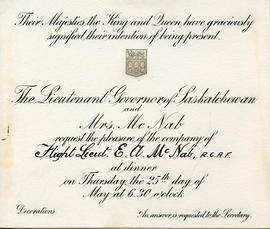 Their Majesties the King and Queen have graciously
signified their intention of being present.
The Lieutenant Governor of Saskatchewan
and
Mrs. Mc Nab
request the pleasure of the company of
Flight Lieut. E. A. McNab, R.C.A.F.
at dinner
on Thursday, the 25th day of
May at 6.30 o'clock
Decorations. An answer is requested to the Secretary.